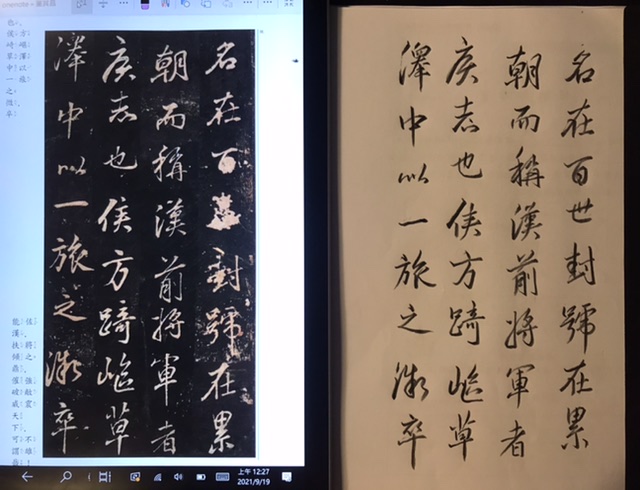 名在百封號在累
朝而稱漢前將軍者
侯志也侯方踦嶇草
澤中以一旅之微卒
上午 12:27
2021/9/19
名在百世封號在累
朝而稱漢前將軍者
侯志也侯方踦嶇草
澤中以一旅之微卒